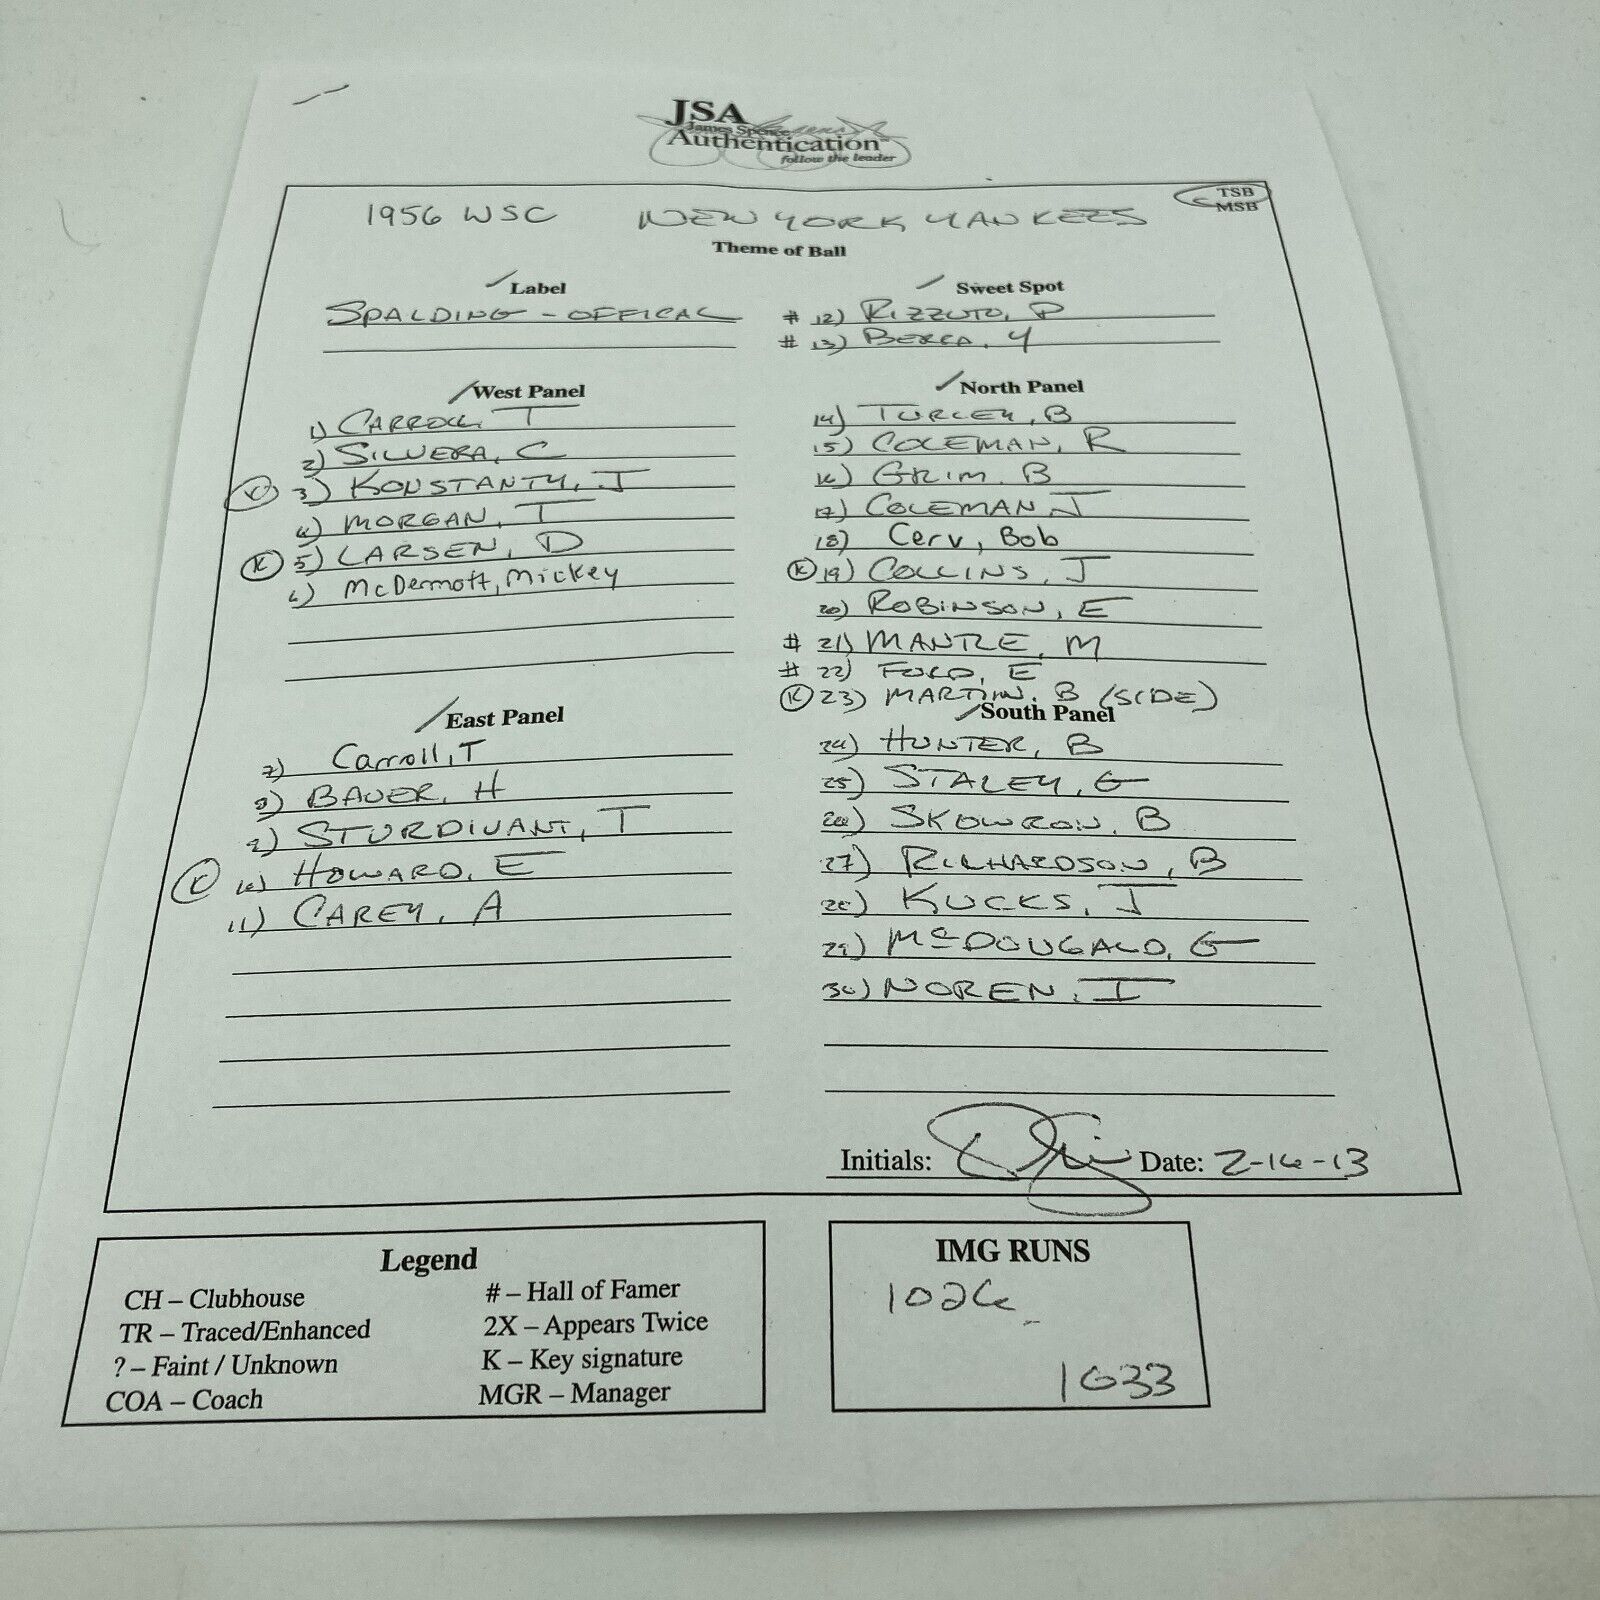 JSA
James Spence
Authentication
follow the leader
TSB
MSB
1956 WSC NEW YORK YANKEES
Theme of Ball
Label
SPALDING - OFFICAL
West Panel
1) CARROLL, T
2) SILVERA, C
K 3) KONSTANTY, J
4) MORGAN, T
K 5) LARSEN, D
6) McDermott, Mickey
East Panel
7) Carroll, T
8) BAUER, H
9) STURDIVANT, T
K 10) HOWARD, E
11) CAREY, A
Sweet Spot
# 12) RIZZUTO, P
# 13) BERRA, Y
North Panel
14) TURLEY, B
15) COLEMAN, R
16) GRIM, B
17) COLEMAN, J
18) Cerv, Bob
K 19) COLLINS, J
20) ROBINSON, E
# 21) MANTLE, M
# 22) FORD, E
K 23) MARTIN, B (SIDE)
South Panel
24) HUNTER, B
25) STALEY, G
26) SKOWRON, B
27) RICHARDSON, B
28) KUCKS, J
29) McDOUGALD, G
30) NOREN, I
Initials: Date: 2-16-13
Legend
CH – Clubhouse # – Hall of Famer
TR – Traced/Enhanced 2X – Appears Twice
? – Faint / Unknown K – Key signature
COA – Coach MGR – Manager
IMG RUNS
1026
1033